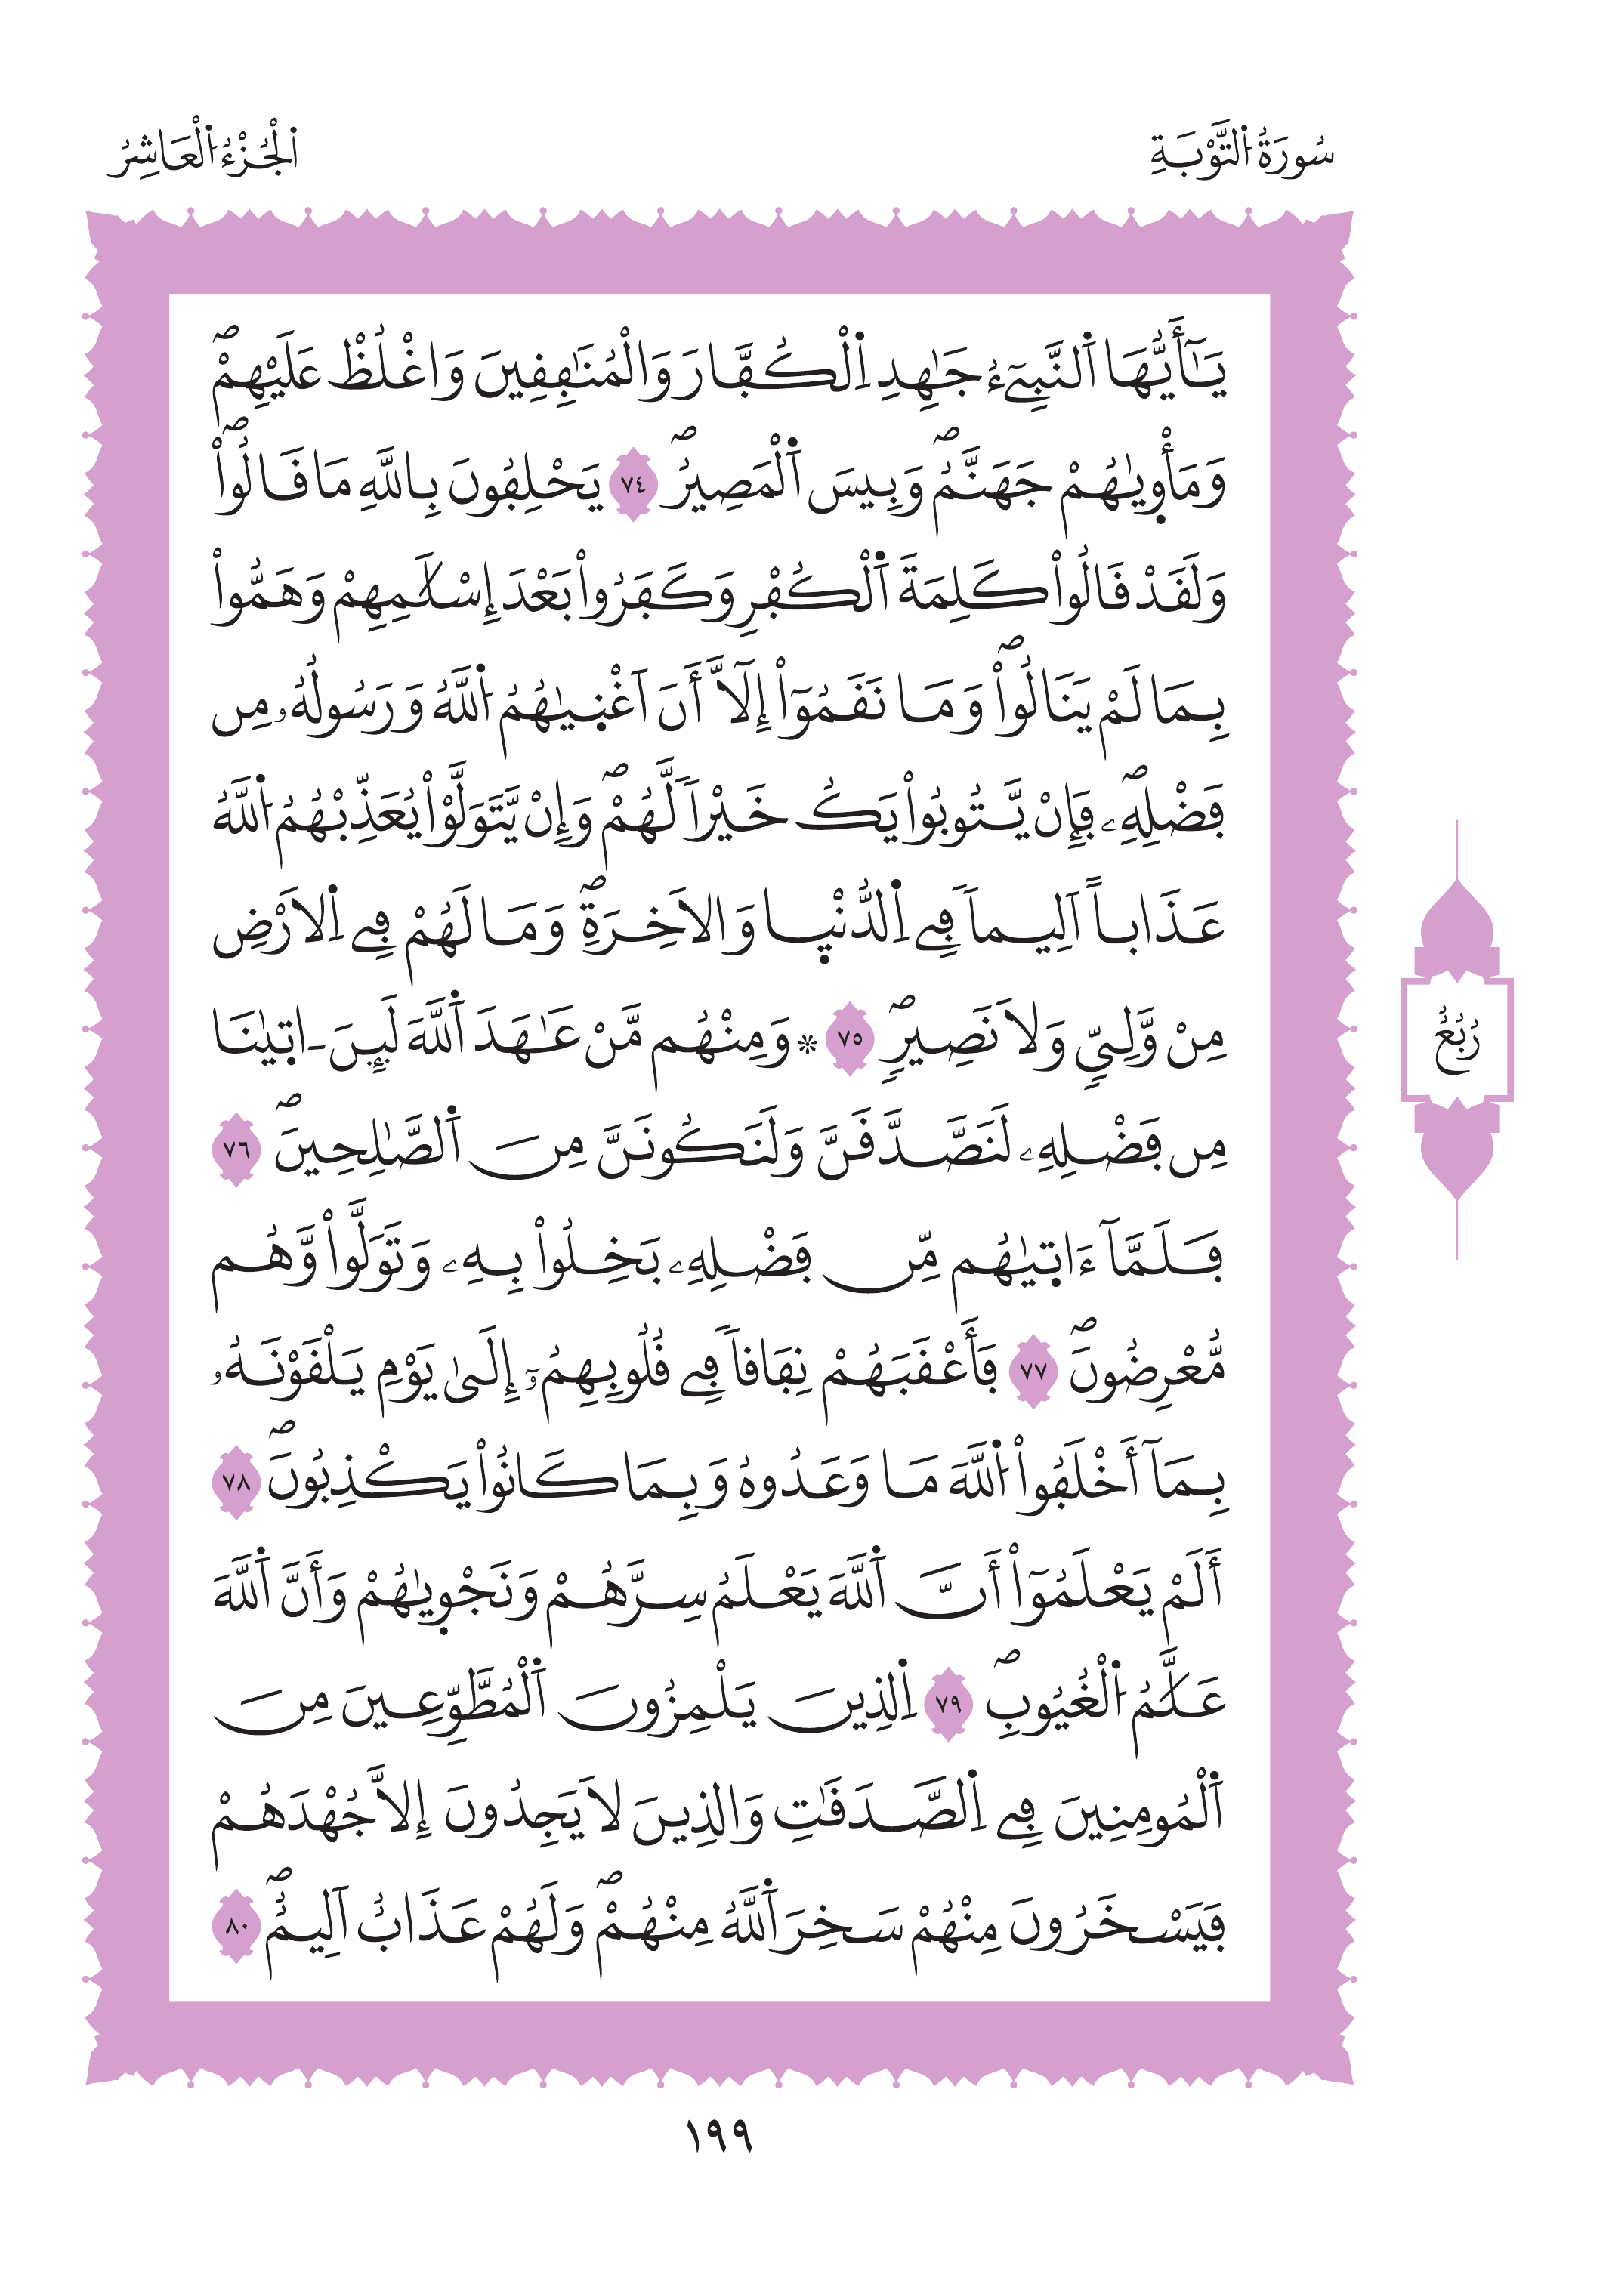 سُورَةُ اُ۬لتَّوْبَةِ
اَ۬لْجُزْءُ اُ۬لْعَاشِرُ
يَٰٓأَيُّهَا اَ۬لنَّبِيٓءُ جَٰهِدِ اِ۬لْكُفَّارَ وَالْمُنَٰفِقِينَ وَاغْلُظْ عَلَيْهِمْۖ
وَمَأْو۪يٰهُمْ جَهَنَّمُۖ وَبِيسَ اَ۬لْمَصِيرُۖ ٧٤ يَحْلِفُونَ بِاللَّهِ مَا قَالُواْۖ
وَلَقَدْ قَالُواْ كَلِمَةَ اَ۬لْكُفْرِ وَكَفَرُواْ بَعْدَ إِسْلَٰمِهِمْ وَهَمُّواْ
بِمَا لَمْ يَنَالُواْۖ وَمَا نَقَمُوٓاْ إِلَّآ أَنَ اَغْن۪يٰهُمُ اُ۬للَّهُ وَرَسُولُهُۥ مِن
فَضْلِهِۦۖ فَإِنْ يَّتُوبُواْ يَكُ خَيْراٗ لَّهُمْۖ وَإِنْ يَّتَوَلَّوْاْ يُعَذِّبْهُمُ اُ۬للَّهُ
عَذَاباً اَلِيماٗ فِے اِ۬لدُّنْي۪ا وَالَاخِرَةِۖ وَمَا لَهُمْ فِے اِ۬لَارْضِ
مِنْ وَّلِيّٖ وَلَا نَصِيرٖۖ ٧٥ ۞ وَمِنْهُم مَّنْ عَٰهَدَ اَ۬للَّهَ لَئِنَ اٰت۪يٰنَا
مِن فَضْلِهِۦ لَنَصَّدَّقَنَّ وَلَنَكُونَنَّ مِنَ اَ۬لصَّٰلِحِينَۖ ٧٦
فَلَمَّآ ءَات۪يٰهُم مِّن فَضْلِهِۦ بَخِلُواْ بِهِۦ وَتَوَلَّواْ وَّهُم
مُّعْرِضُونَۖ ٧٧ فَأَعْقَبَهُمْ نِفَاقاٗ فِے قُلُوبِهِمُۥٓ إِلَىٰ يَوْمِ يَلْقَوْنَهُۥ
بِمَآ أَخْلَفُواْ اُ۬للَّهَ مَا وَعَدُوهُ وَبِمَا كَانُواْ يَكْذِبُونَۖ ٧٨
أَلَمْ يَعْلَمُوٓاْ أَنَّ اَ۬للَّهَ يَعْلَمُ سِرَّهُمْ وَنَجْو۪يٰهُمْ وَأَنَّ اَ۬للَّهَ
عَلَّٰمُ اُ۬لْغُيُوبِۖ ٧٩ اِ۬لذِينَ يَلْمِزُونَ اَ۬لْمُطَّوِّعِينَ مِنَ
اَ۬لْمُومِنِينَ فِے اِ۬لصَّدَقَٰتِ وَالذِينَ لَا يَجِدُونَ إِلَّا جُهْدَهُمْ
فَيَسْخَرُونَ مِنْهُمْ سَخِرَ اَ۬للَّهُ مِنْهُمْۖ وَلَهُمْ عَذَابٌ اَلِيمٌۖ ٨٠
رُبُعُ
١٩٩